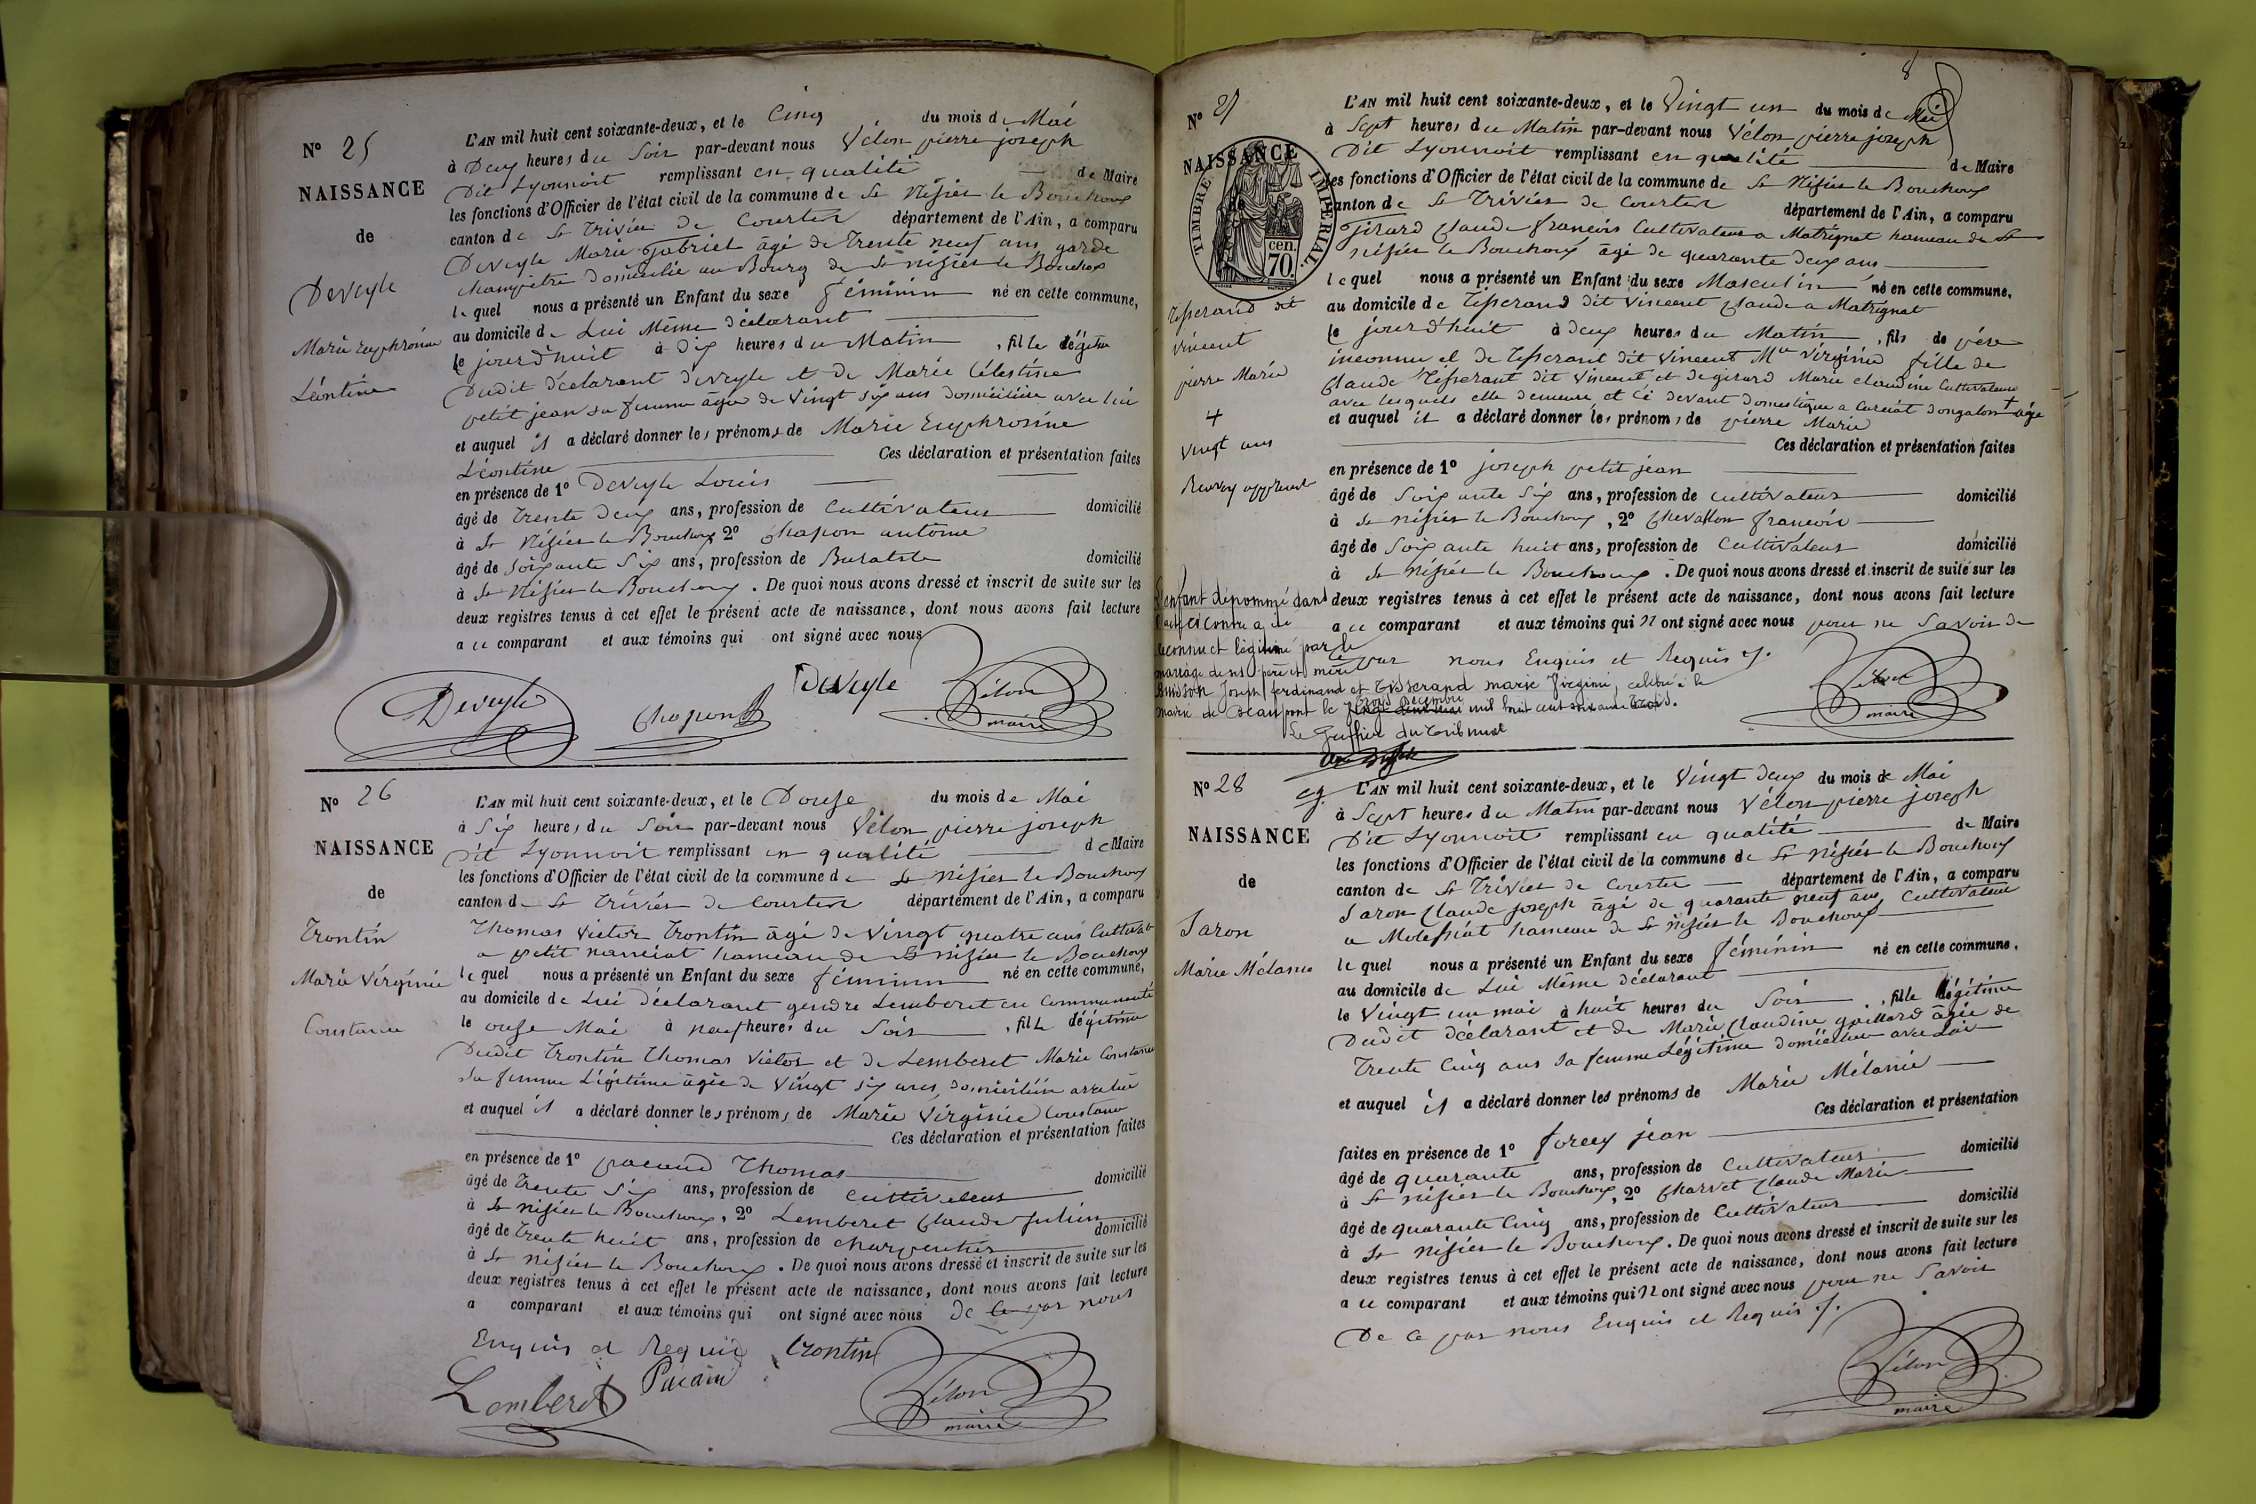 N° 25
NAISSANCE
de
Deveyle
Marie Euphrosine
Léontine
L'AN mil huit cent soixante-deux, et le Cinq du mois de Mai
à Deux heures du Soir par-devant nous Vélon pierre joseph
Dit Lyonnoit remplissant en qualité de Maire
les fonctions d'Officier de l'état civil de la commune de St Nizier le Bouchoux
canton de St Trivier de Courtes département de l'Ain, a comparu
Deveyle Marie Gabriel âgé de Trente neuf ans garde
champêtre domicilié au Bourg de St nizier le Bouchoux
lequel nous a présenté un Enfant du sexe féminin né en cette commune,
au domicile de Lui Même déclarant
le jourd'huit à dix heures du Matin, fille légitime
Dudit déclarant deveyle et de Marie Célestine
petit jean sa femme âgée de vingt six ans domiciliée avec lui
et auquel il a déclaré donner les prénoms de Marie Euphrosine
Léontine Ces déclaration et présentation faites
en présence de 1° Deveyle Louis
âgé de trente deux ans, profession de cultivateur domicilié
à St Nizier le Bouchoux 2° Chapon antoine
âgé de soixante Six ans, profession de domicilié
à St Nizier le Bouchoux. De quoi nous avons dressé et inscrit de suite sur les
deux registres tenus à cet effet le présent acte de naissance, dont nous avons fait lecture
a ce comparant et aux témoins qui ont signé avec nous
Deveyle Chapon Deveyle Vélon
maire
N° 26
NAISSANCE
de
Trontin
Marie Virginie
Constance
L'AN mil huit cent soixante-deux, et le Douze du mois de Mai
à Six heures du Soir par-devant nous Vélon pierre joseph
Dit Lyonnoit remplissant en qualité de Maire
les fonctions d'Officier de l'état civil de la commune de St Nizier le Bouchoux
canton de St Trivier de Courtes département de l'Ain, a comparu
Thomas Victor Trontin âgé de vingt quatre ans Cultivat
a petit hameau de St nizier le Bouchoux
lequel nous a présenté un Enfant du sexe féminin né en cette commune,
au domicile de Lui déclarant gendre Lemberet en Communauté
le onze Mai à neuf heures du Soir, fille légitime
Dudit Trontin Thomas Victor et de Lemberet Marie Constance
sa femme Légitime âgée de vingt six ans, domiciliée
et auquel il a déclaré donner les prénoms de Marie Virginie Constance
Ces déclaration et présentation faites
en présence de 1° pacaud Thomas
âgé de Trente Six ans, profession de cultivateur domicilié
à St nizier le Bouchoux, 2° Lemberet Claude Julien
âgé de trente huit ans, profession de charpentier domicilié
à St Nizier le Bouchoux. De quoi nous avons dressé et inscrit de suite sur les
deux registres tenus à cet effet le présent acte de naissance, dont nous avons fait lecture
a comparant et aux témoins qui ont signé avec nous de ce par nous
Enquis et Requis Trontin
Lemberet Vélon
maire
8
N° 27
NAISSANCE
TIMBRE IMPERIAL
70 cen.
Tisserand dit
vincent
pierre Marie
+
vingt ans
L'AN mil huit cent soixante-deux, et le Vingt un du mois de Mai
à Sept heures du Matin par-devant nous Vélon pierre joseph
Dit Lyonnoit remplissant en qualité de Maire
les fonctions d'Officier de l'état civil de la commune de St Nizier le Bouchoux
canton de St Trivier de Courtes département de l'Ain, a comparu
Girard Claude francois Cultivateur a Matrignat hameau de St
nizier le Bouchoux âgé de quarante deux ans
lequel nous a présenté un Enfant du sexe Masculin né en cette commune,
au domicile de Tisserand dit vincent Claude a Matrignat
le jourd'huit à deux heures du Matin, fils de père
inconnu et de Tisserant dit vincent Mie Virginie fille de
Claude Tisserant dit vincent et de girard Marie claudine Cultivateurs
avec lesquels elle demeure et ci devant domestique a Curciat dongalon + âgée
et auquel il a déclaré donner les prénoms de pierre Marie
Ces déclaration et présentation faites
en présence de 1° joseph petit jean
âgé de Soixante Six ans, profession de cultivateur domicilié
à St nizier le Bouchoux, 2° Chevallon francois
âgé de Soixante huit ans, profession de Cultivateur domicilié
à St Nizier le Bouchoux. De quoi nous avons dressé et inscrit de suite sur les
deux registres tenus à cet effet le présent acte de naissance, dont nous avons fait lecture
a ce comparant et aux témoins qui n'ont signé avec nous pour ne Savoir de
ce par nous Enquis et Requis
Vélon
maire
L'enfant dénommé dans
l'acte ci contre a été
reconnu et légitimé par le
mariage de ses père et mère
Buisson Joseph ferdinand et Tisserand marie Virginie, célébré à la
mairie de Beaupont le trois décembre mil huit cent soixante trois.
Le Greffier du Tribunal
N° 28
NAISSANCE
de
Jaron
Marie Mélanie
L'AN mil huit cent soixante-deux, et le Vingt deux du mois de Mai
à Sept heures du Matin par-devant nous Vélon pierre joseph
Dit Lyonnoit remplissant en qualité de Maire
les fonctions d'Officier de l'état civil de la commune de St nizier le Bouchoux
canton de St Trivier de Courtes département de l'Ain, a comparu
Jaron Claude joseph âgé de quarante neuf ans Cultivateur
a hameau de St nizier le Bouchoux
lequel nous a présenté un Enfant du sexe féminin né en cette commune,
au domicile de Lui Même déclarant
le Vingt un mai à huit heures du Soir, fille légitime
Dudit déclarant et de Marie Claudine gaillard âgée de
Trente Cinq ans sa femme Légitime domiciliée avec Lui
et auquel il a déclaré donner les prénoms de Marie Mélanie
Ces déclaration et présentation
faites en présence de 1° jean
âgé de quarante ans, profession de Cultivateur domicilié
à St nizier le Bouchoux, 2° Charvet Claude Marie
âgé de quarante Cinq ans, profession de Cultivateur domicilié
à St Nizier le Bouchoux. De quoi nous avons dressé et inscrit de suite sur les
deux registres tenus à cet effet le présent acte de naissance, dont nous avons fait lecture
a ce comparant et aux témoins qui n'ont signé avec nous pour ne Savoir
De ce par nous Enquis et Requis
Vélon
maire